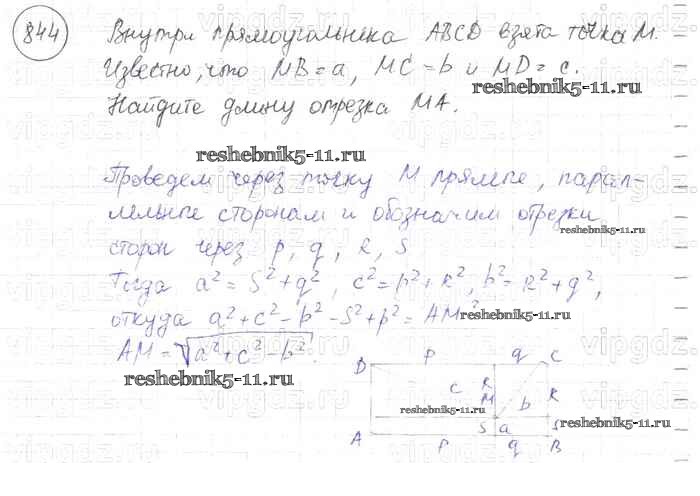 844
Внутри прямоугольника ABCD взята точка M.
Известно, что MB = a, MC = b и MD = c.
Найдите длину отрезка MA.
reshebnik5-11.ru
reshebnik5-11.ru
Проведем через точку M прямые, парал-
лельные сторонам и обозначим отрезки
reshebnik5-11.ru
сторон через p, q, R, S
Тогда a² = S² + q², c² = p² + R², b² = R² + q²,
откуда a² + c² - b² = S² + p² = AM²
reshebnik5-11.ru
AM = √a² + c² - b².
reshebnik5-11.ru
D p q C
c R
M b R
reshebnik5-11.ru
S a S
reshebnik5-11.ru
A p q B
vipgdz.ru